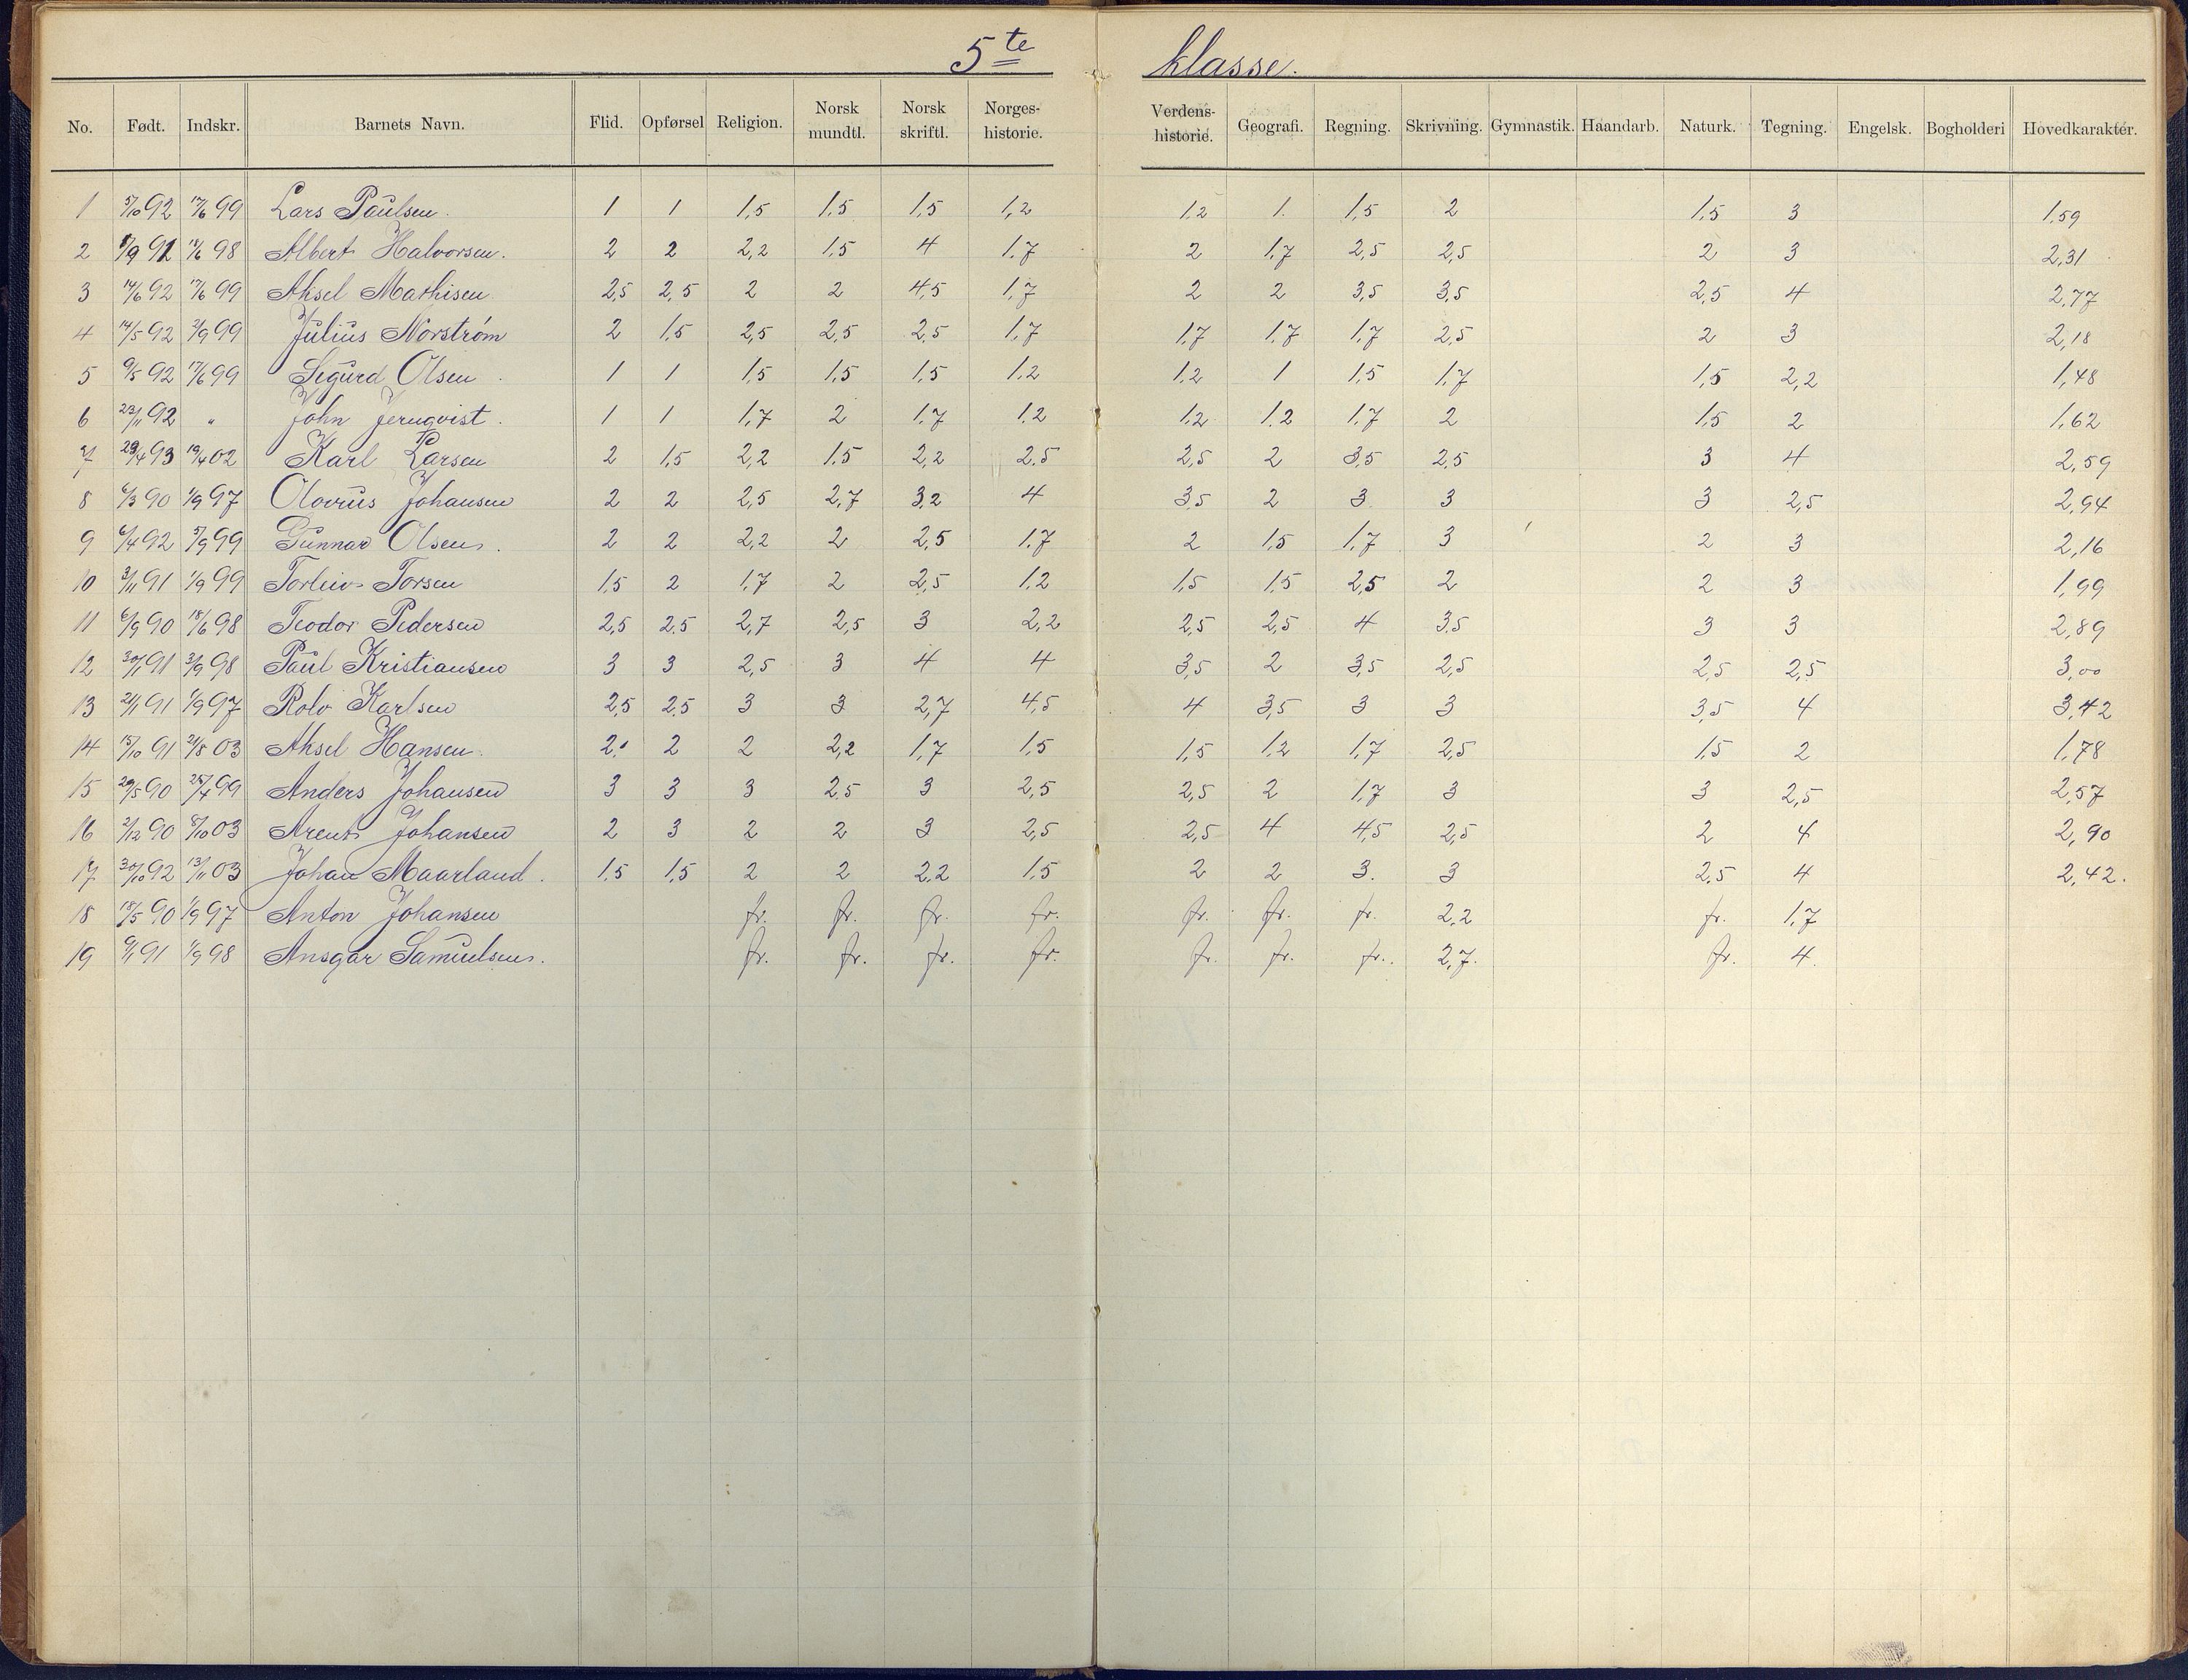 5te klasse.
No. Født. Indskr. Barnets Navn. Flid. Opførsel Religion. Norsk mundtl. Norsk skriftl. Norges-historie. Verdens-historie. Geografi. Regning. Skrivning. Gymnastik. Haandarb. Naturk. Tegning. Engelsk. Bogholderi Hovedkarakter.
1 5/10 92 17/6 99 Lars Paulsen. 1 1 1,5 1,5 1,5 1,2 1,2 1. 1,5 2 1,5 3 1,59
2 1/9 91 18/6 98 Albert Halvorsen. 2 2 2,2 1,5 4 1,7 2 1,7 2,5 2,5 2 3 2,31
3 14/6 92 17/6 99 Aksel Mathisen 2,5 2,5 2 2 4,5 1,7 2 2 3,5 3,5 2,5 4 2,77
4 14/5 92 3/9 99 Julius Norström 2 1,5 2,5 2,5 2,5 1,7 1,7 1,7 1,7 2,5 2 3 2,18
5 9/5 92 17/6 99 Sigurd Olsen 1 1 1,5 1,5 1,5 1,2 1,2 1 1,5 1,7 1,5 2,2 1,48
6 23/11 92 " John Jernqvist. 1 1 1,7 2 1,7 1,2 1,2 1,2 1,7 2 1,5 2 1,62
7 29/4 93 19/4 02 Karl Larsen 2 1,5 2,2 1,5 2,2 2,5 2,5 2 3,5 2,5 3 4 2,59
8 6/3 90 1/9 97 Olavus Johansen 2 2 2,5 2,7 3,2 4 3,5 2 3 3 3 2,5 2,94
9 6/4 92 5/9 99 Gunnar Olsen. 2 2 2,2 2 2,5 1,7 2 1,5 1,7 3 2 3 2,16
10 3/11 91 1/9 99 Torleiv Torsen 1,5 2 1,7 2 2,5 1,2 1,5 1,5 2,5 2 2 3 1,99
11 6/9 90 18/6 98 Teodor Pedersen 2,5 2,5 2,7 2,5 3 2,2 2,5 2,5 4 3,5 3 3 2,89
12 30/1 91 3/9 98 Paul Kristiansen 3 3 2,5 3 4 4 3,5 2 3,5 2,5 2,5 2,5 3,00
13 21/1 91 1/9 97 Rolv Karlsen 2,5 2,5 3 3 2,7 4,5 4 3,5 3 3 3,5 4 3,42
14 15/10 91 21/8 03 Aksel Hansen. 2 2 2 2,2 1,7 1,5 1,5 1,2 1,7 2,5 1,5 2 1,78
15 29/5 90 25/4 99 Anders Johansen 3 3 3 2,5 3 2,5 2,5 2 1,7 3 3 2,5 2,57
16 2/12 90 8/10 03 Arent Johansen 2 3 2 2 3 2,5 2,5 4 4,5 2,5 2 4 2,90
17 30/10 92 13/11 03 Johan Maarland. 1,5 1,5 2 2 2,2 1,5 2 2 3. 3 2,5 4 2,42.
18 18/5 90 1/9 97 Anton Johansen fr. fr. fr. fr. fr. fr. fr. 2,2 fr. 1,7
19 9/1 91 1/9 98 Ansgar Samuelsen. fr. fr. fr. fr. fr. fr. fr. 2,7. fr. 4